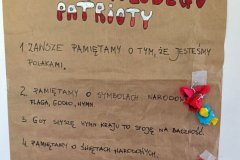 PATRIOTY
1. ZAWSZE PAMIĘTAMY O TYM, ŻE JESTEŚMY
POLAKAMI.
2. PAMIĘTAMY O SYMBOLACH NARODOWYCH
FLAGA, GODŁO, HYMN
3. GDY SŁYSZĘ HYMN KRAJU TO STOJĘ NA BACZNOŚĆ.
4. PAMIĘTAMY O ŚWIĘTACH NARODOWYCH.